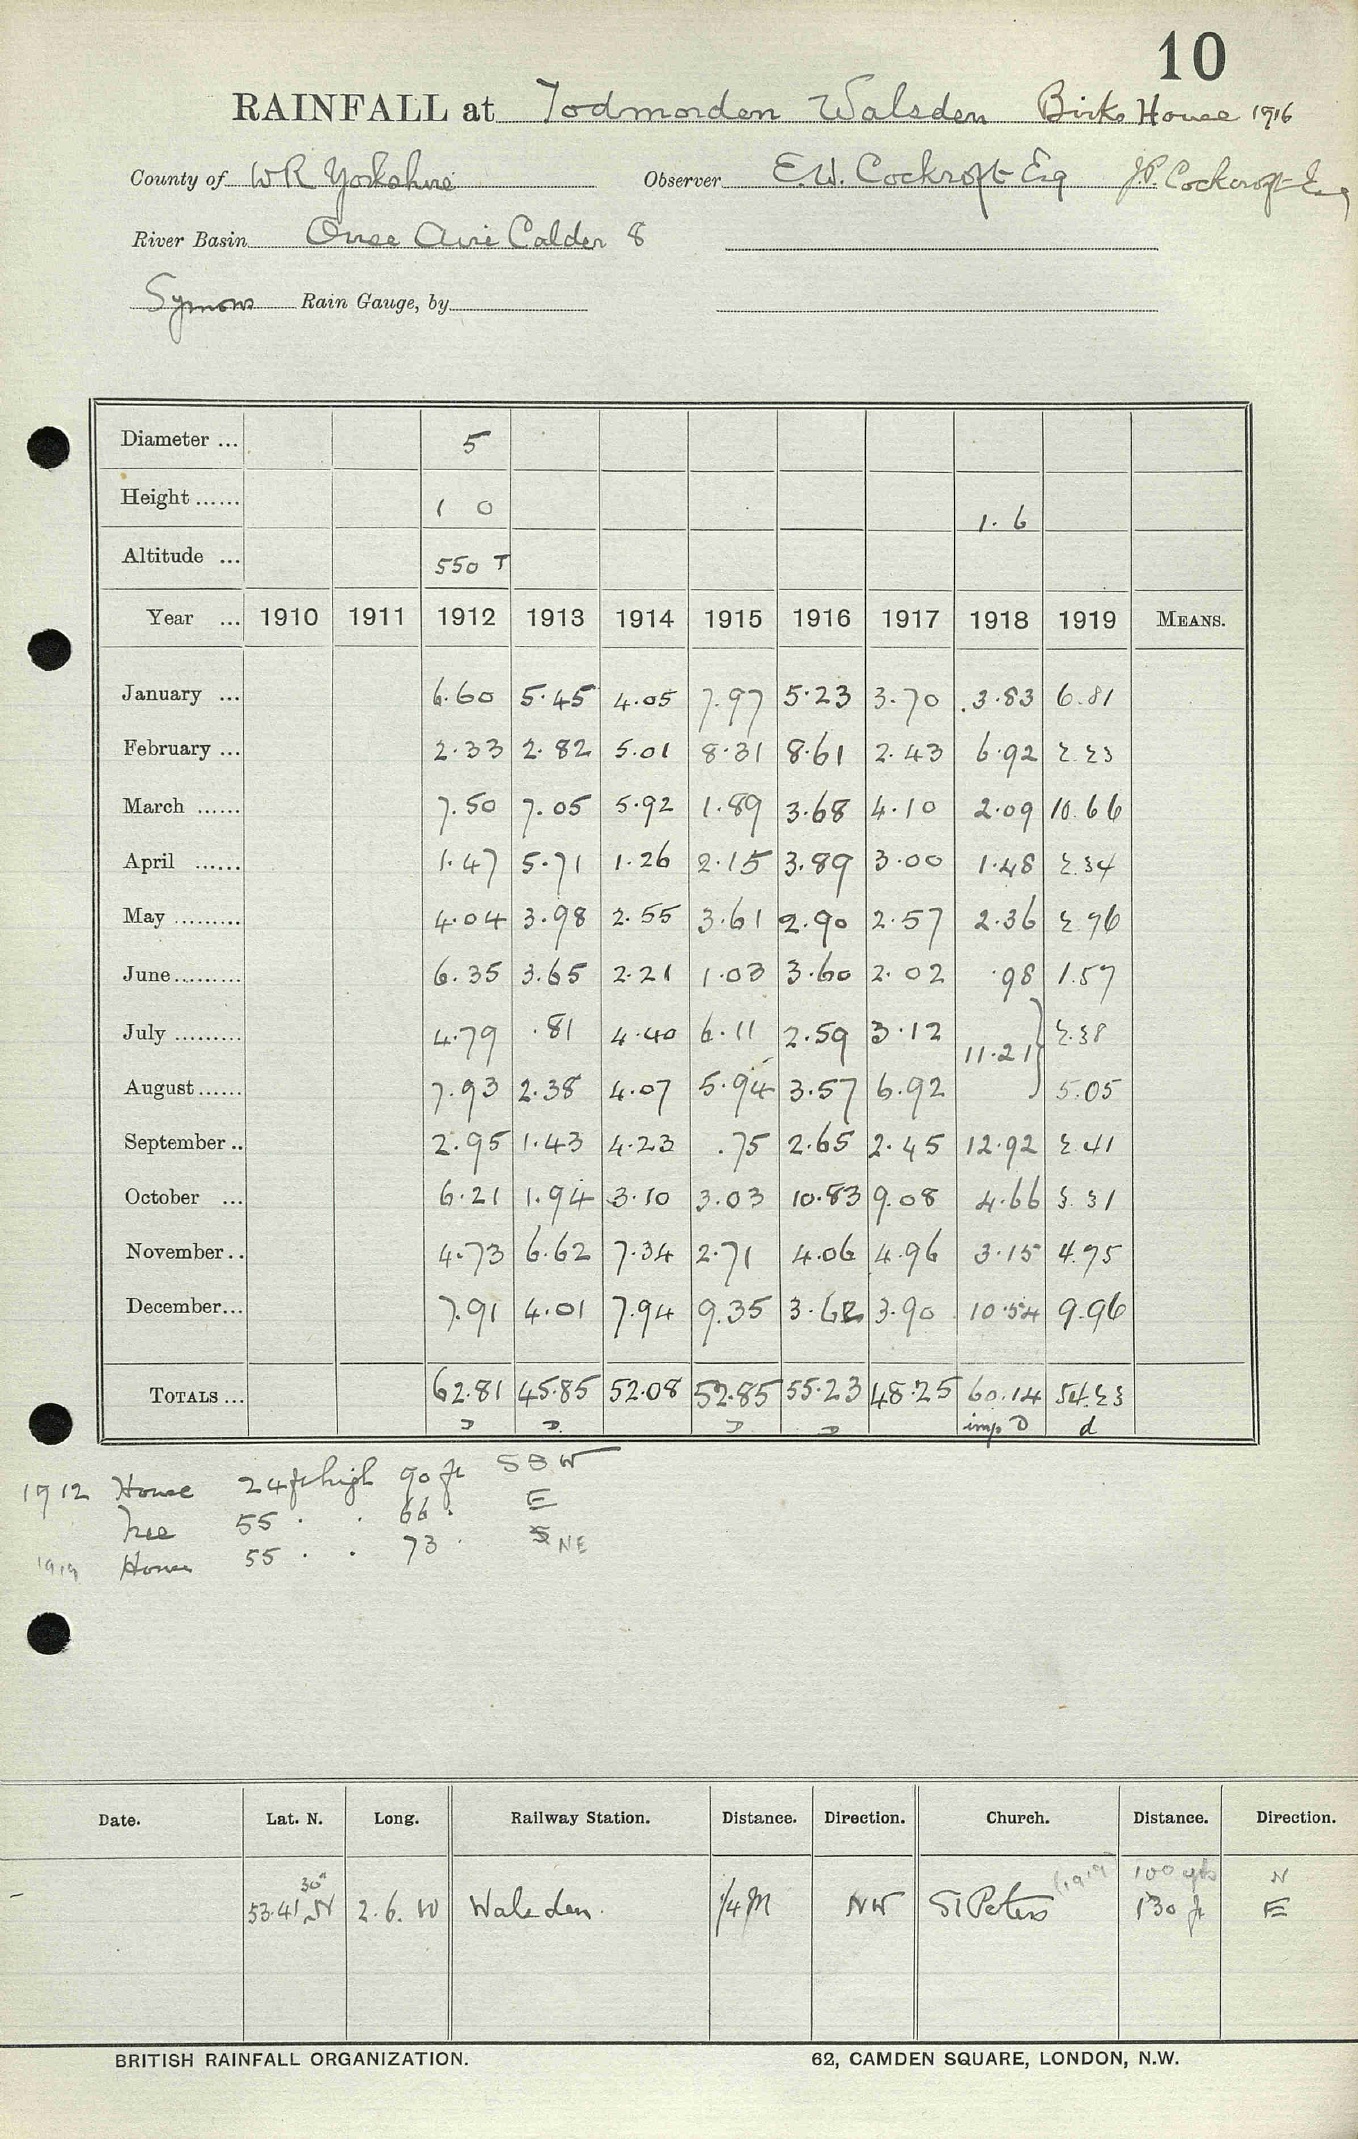 10
RAINFALL at Todmorden Walsden Birks House 1916
County of W R Yorkshire Observer E.W. Cockroft Esq J.P. Cockcroft Esq
River Basin Ouse Aire Calder 8
Symons Rain Gauge, by
Diameter ... 5
Height ...... 1 0 1.6
Altitude ... 550 T
Year ... 1910 1911 1912 1913 1914 1915 1916 1917 1918 1919 MEANS.
January ... 6.60 5.45 4.05 7.97 5.23 3.70 3.83 6.81
February ... 2.33 2.82 5.01 8.31 8.61 2.43 6.92 2.23
March ...... 7.50 7.05 5.92 1.89 3.68 4.10 2.09 10.66
April ...... 1.47 5.71 1.26 2.15 3.89 3.00 1.48 2.34
May ......... 4.04 3.98 2.55 3.61 2.90 2.57 2.36 2.76
June......... 6.35 3.65 2.21 1.03 3.60 2.02 .98 1.57
July ......... 4.79 .81 4.40 6.11 2.59 3.12 11.21} 2.38
August...... 7.93 2.38 4.07 5.94 3.57 6.92 5.05
September .. 2.95 1.43 4.23 .75 2.65 2.45 12.92 2.41
October ... 6.21 1.94 3.10 3.03 10.83 9.08 4.66 3.31
November.. 4.73 6.62 7.34 2.71 4.06 4.96 3.15 4.75
December... 7.91 4.01 7.94 9.35 3.62 3.90 10.54 9.96
TOTALS ... 62.81 45.85 52.08 52.85 55.23 48.25 60.14 54.23
D D D D imp D d
1912 House 24 ft high 90 ft S S W
Tree 55 . . 66 . E
1919 House 55 . . 73 . S NE
Date. Lat. N. Long. Railway Station. Distance. Direction. Church. Distance. Direction.
30" (1919 100 yds N
53.41 N 2.6.W Walsden. 1/4 M NW St Peters 130 ft E
BRITISH RAINFALL ORGANIZATION. 62, CAMDEN SQUARE, LONDON, N.W.